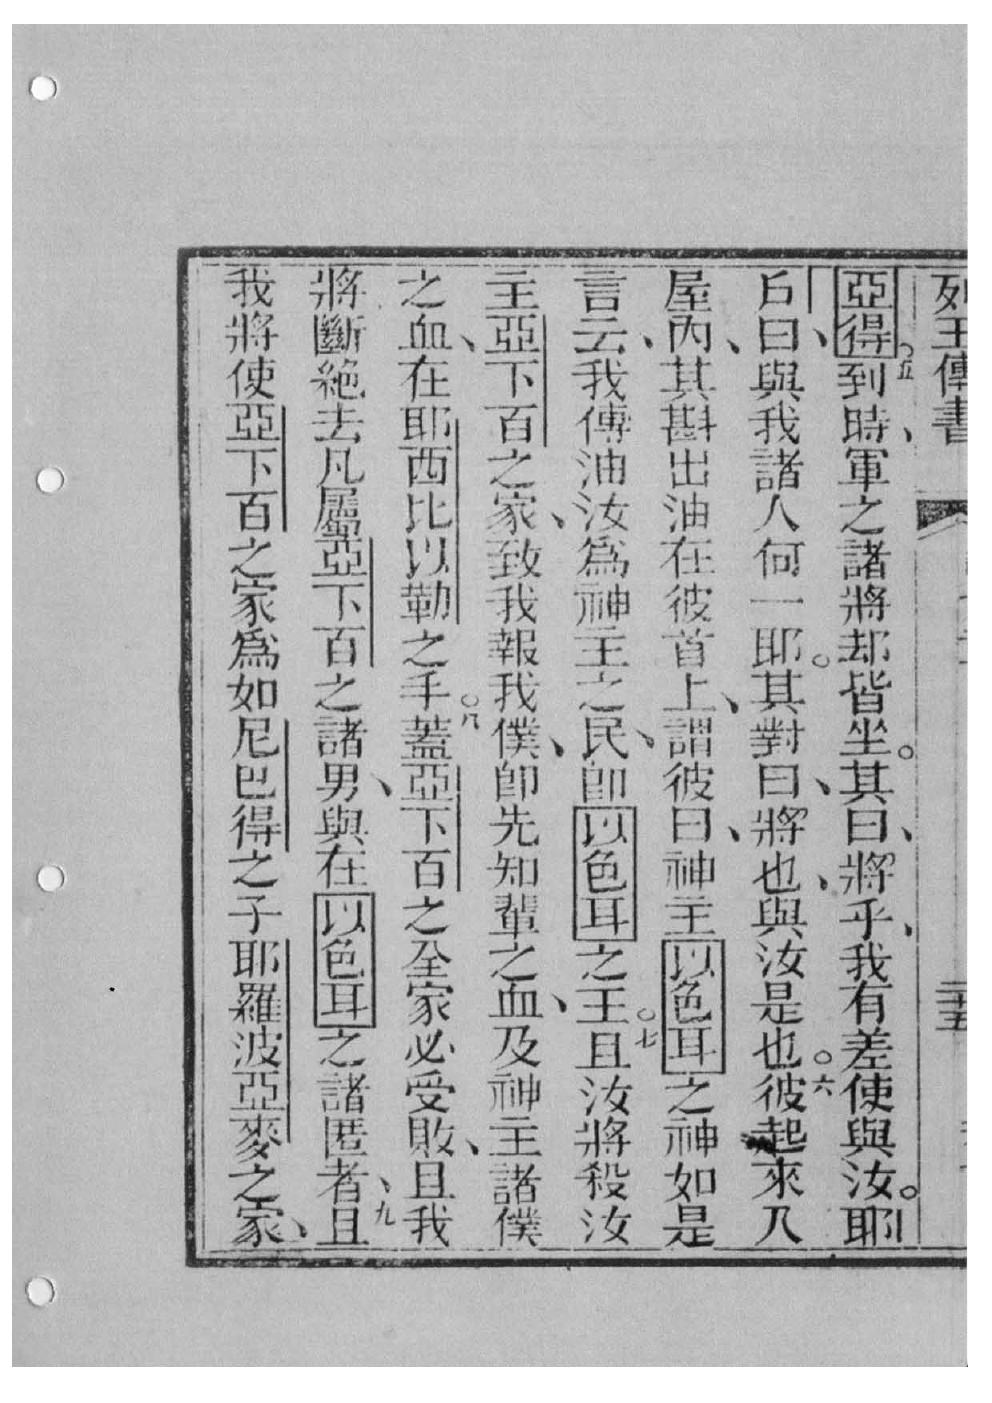 列王傳書
二十五
亞得。五到時、軍之諸將却皆坐。其曰、將乎、我有差使與汝。耶
戶曰、與我諸人何一耶。其對曰、將也、與汝是也。六彼起來入
屋內、其斟出油在彼首上、謂彼曰、神主以色耳之神如是
言云、我傳油汝爲神主之民、即以色耳之王。七且汝將殺汝
主亞下百之家、致我報我僕、即先知輩之血、及神主諸僕
之血、在耶西比以勒之手。八蓋亞下百之全家必受敗、且我
將斷絕去凡屬亞下百之諸男、與在以色耳之諸匿者、九且
我將使亞下百之家爲如尼巴得之子耶羅波亞麥之家、